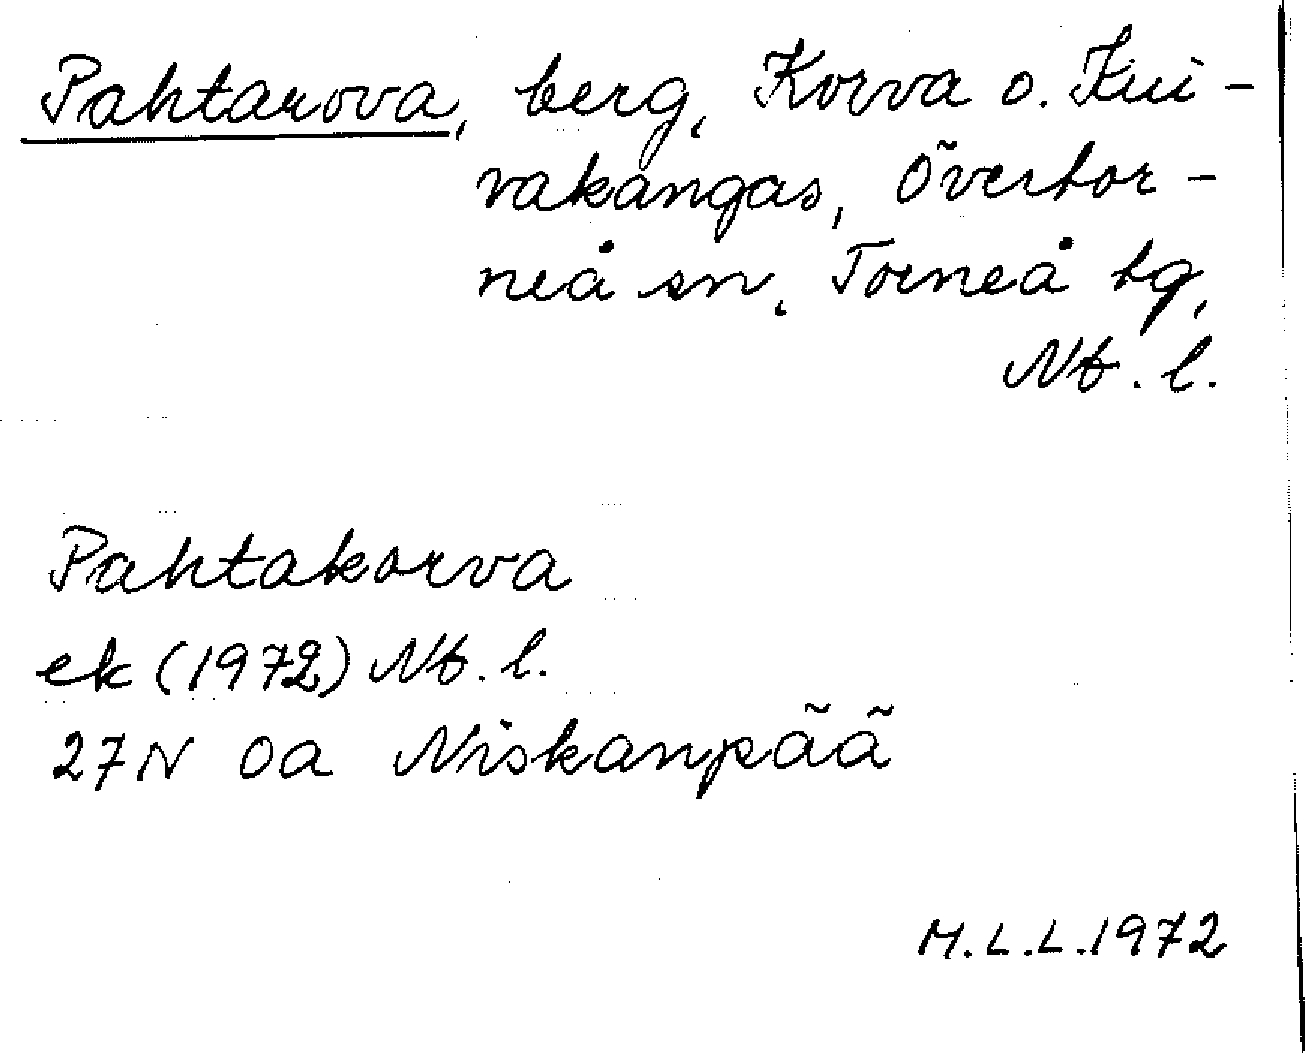 Pahtarova, berg, Korva o. Kui-
vakangas, Övertor-
neå sn, Torneå tg,
Nb. l.
Pahtakorva
ek (1972) Nb. l.
27N 0a Niskanpää
M.L.L. 1972